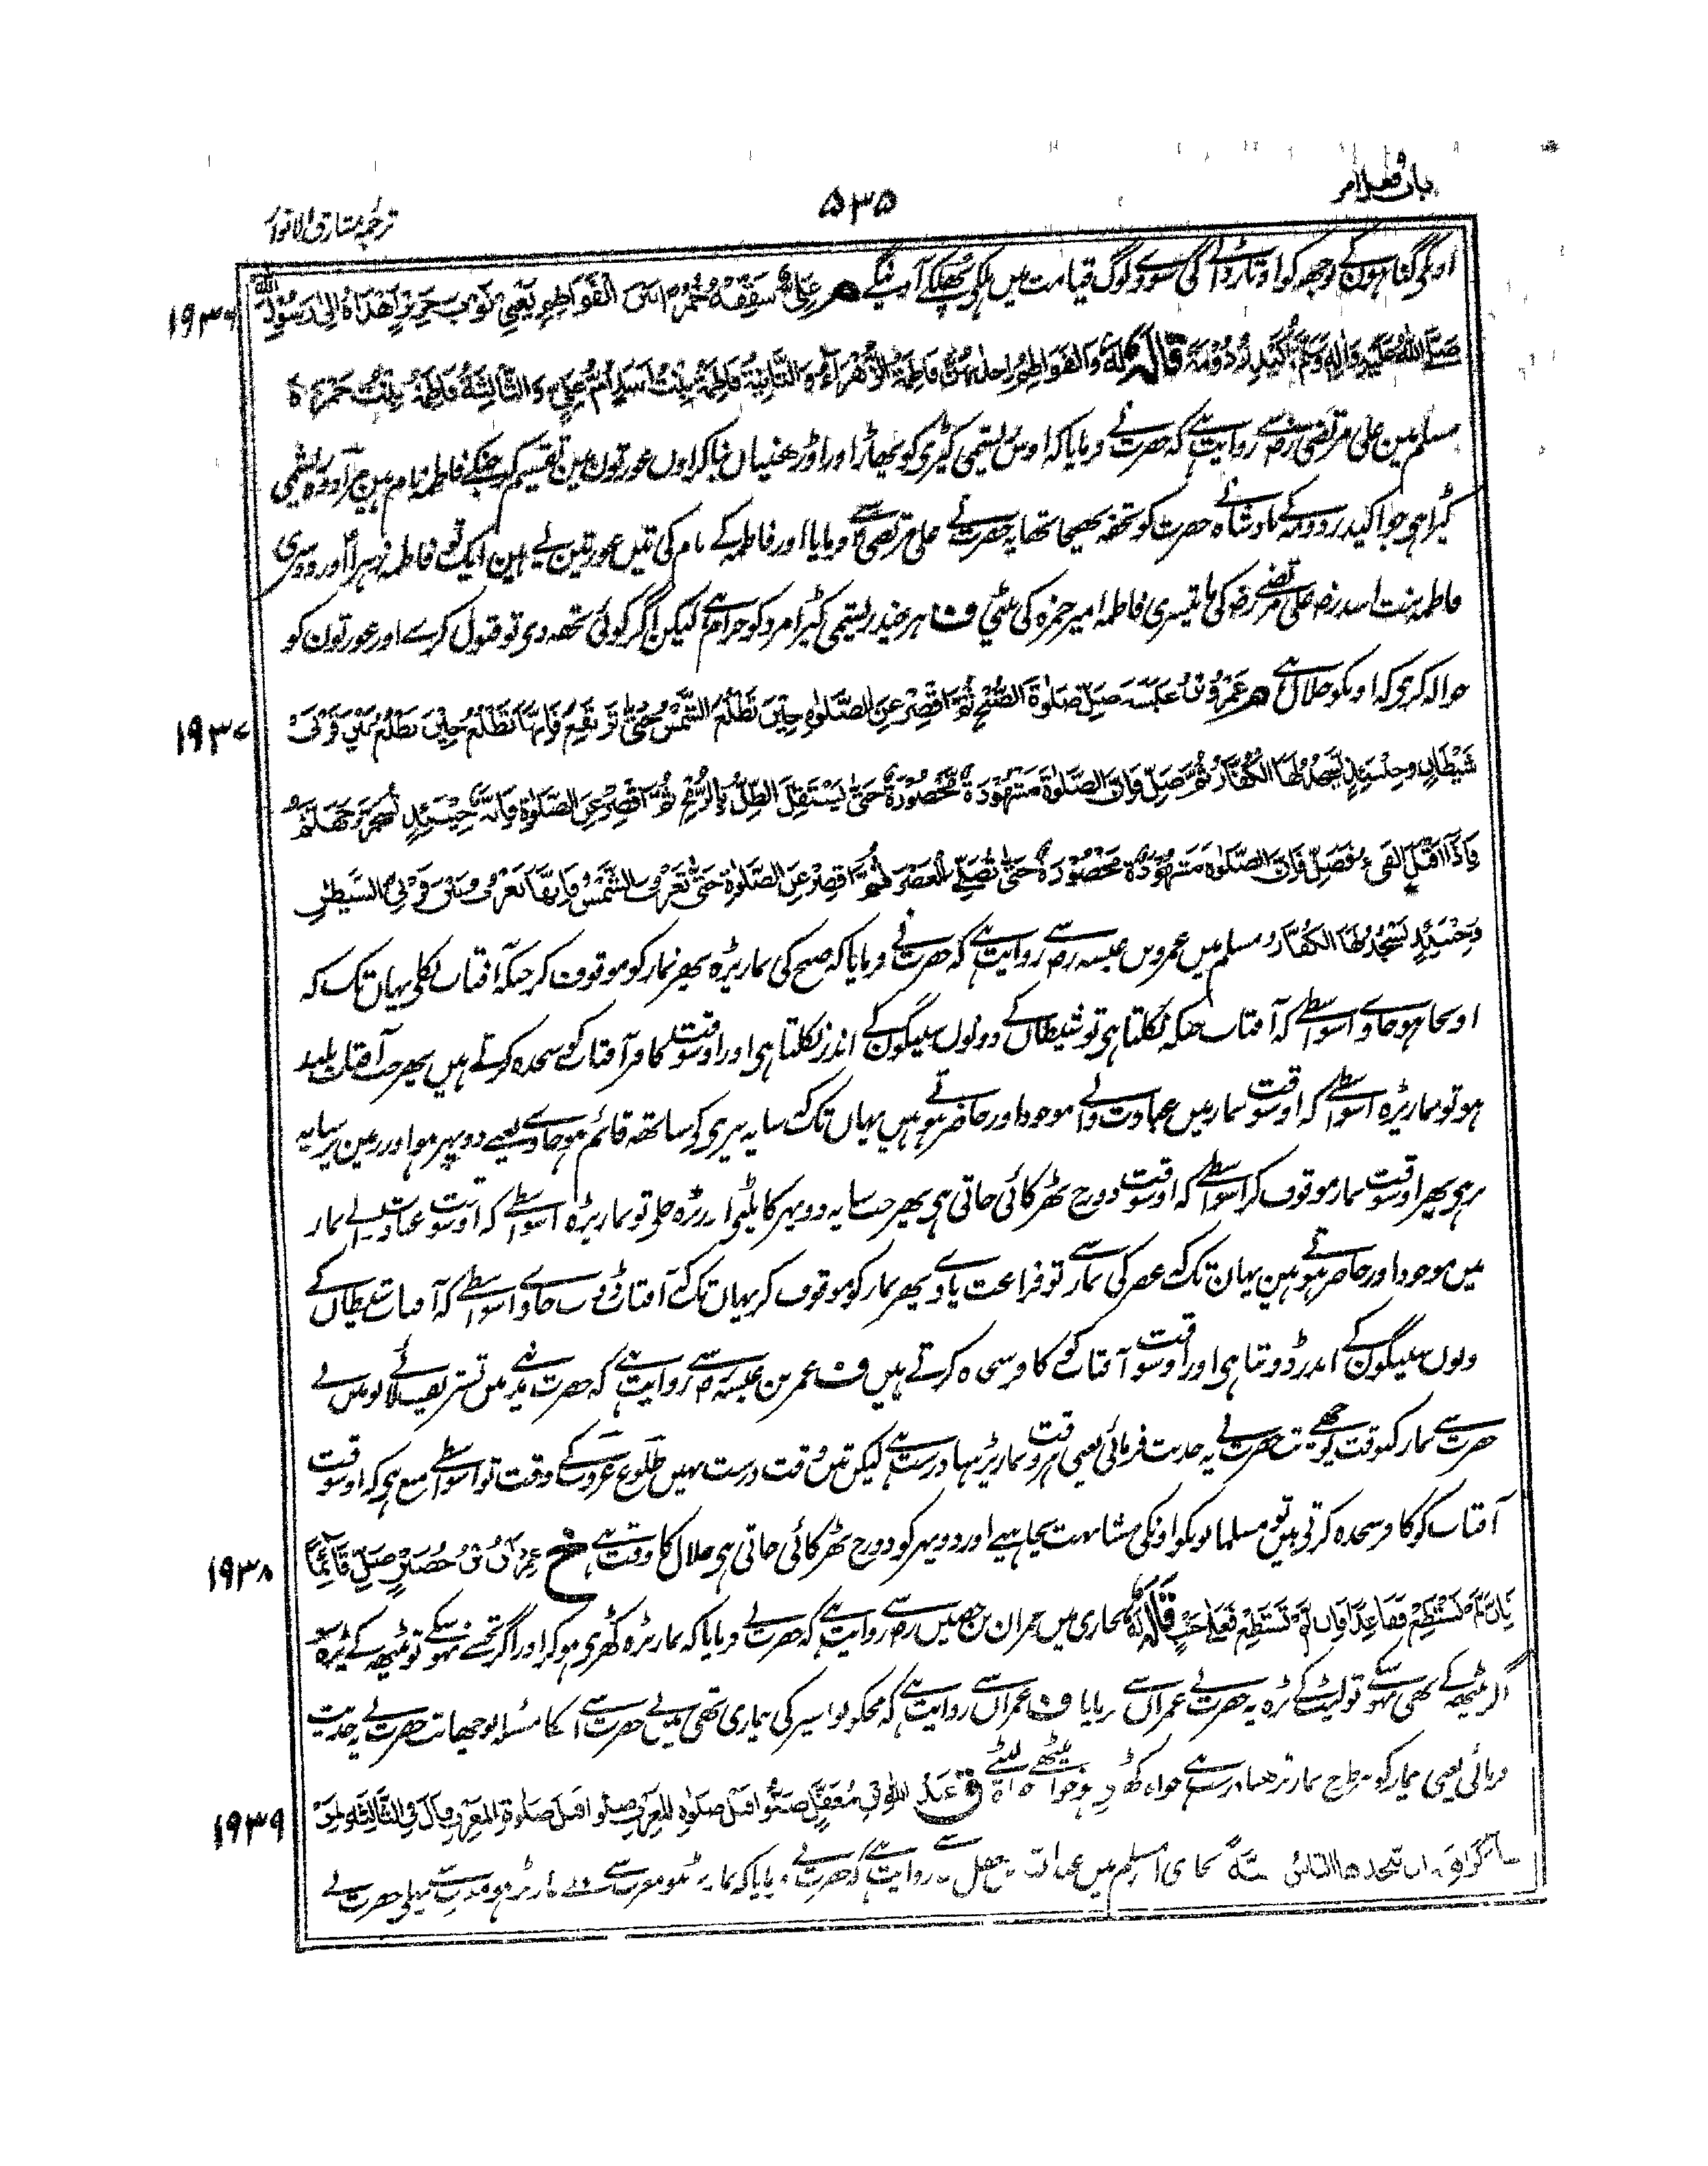 باب فعل امر
۵۳۵
ترجمہ مشارق الانوار
اونکی گناہون کے بوجھ کو اوتار ڈالے گی سو وے لوگ قیامت میں ہلکے پھلکے آوینگے م علی شققه خمرا بين الفواطم يعني ثوب حرير اهداه الى رسول الله
۱۹۳۶
صلى الله عليه واله وسلم اكيدر دومة قاله له والفواطم احدهن فاطمة الزهراء والثانية فاطمة بنت اسد ام علي والثالثة فاطمة بنت حمزة
مسلم مین علی مرتضی رضہ سے روایت ہے کہ حضرت نے فرمایا کہ اوس ریشمی کپڑی کو پھاڑ اور اوڑھنیاں بناکر اون عورتون مین تقسیم کر جنکے فاطمہ نام ہین مراد وہ ریشمی
کپڑا ہی جو اکیدر دومہ کے بادشاہ نے حضرت کو تحفہ بھیجا تھا یہ حضرت نے علی مرتضی سے فرمایا اور فاطمہ کے نام کی تین عورتین تھے ہین ایک تو فاطمہ زہرا اور دوسری
فاطمہ بنت اسد رضہ علی مرتضے رضہ کی ما تیسری فاطمہ امیر حمزہ کی بیٹی ف ہر چند ریشمی کپڑا مرد کو حرام ہے لیکن اگر کوئی تحفہ دی تو قبول کرے اور عورتون کو
حوالہ کری کہ اونکو حلال ہے م عمرو بن عبسة صل صلوة الصبح ثم اقصر عن الصلوة حين تطلع الشمس حتى ترتفع فانها تطلع حين تطلع بين قرني
۱۹۳۷
شيطان وحينئذ يسجد لها الكفار ثم صل فان الصلوة مشهودة محضورة حتى يستقل الظل بالرمح ثم اقصر عن الصلوة فانه حينئذ تسجر جهنم
فاذا اقبل الفيء فصل فان الصلوة مشهودة محضورة حتى تصلي العصر ثم اقصر عن الصلوة حتى تغرب الشمس فانها تغرب بين قرني الشيطن
وحينئذ يسجد لها الكفار مسلم میں عمرو بن عبسہ رضہ سے روایت ہے کہ حضرت نے فرمایا کہ صبح کی نماز پڑہ پھر نماز کو موقوف کر جبکہ آفتاب نکلی یہاں تک کہ
اونچا ہو جاوے اسواسطے کہ آفتاب جبکہ نکلتا ہی تو شیطان کے دونوں سینگون کے اندر نکلتا ہی اور اوسوقت کافر آفتاب کو سجدہ کرتے ہیں پھر جب آفتاب بلند
ہو تو نماز پڑہ اسواسطے کہ اوسوقت نماز میں عبادت والے موجود اور حاضر ہوتے ہیں یہاں تک کہ سایہ نیزی کے ساتھ قائم ہو جاوے یعنے دوپہر ہو اور زمین پر سایہ
نرہی پھر اوسوقت نماز موقوف کر اسواسطے کہ اوسوقت دوزخ بھڑکائی جاتی ہی پھر جب سایہ دوپہر کا پلٹی تو نماز پڑہ اسواسطے کہ اوسوقت عبادت والے نماز
میں موجود اور حاضر ہوتے ہین یہان تک کہ عصر کی نماز سے تو فراغت پاوے پھر نماز کو موقوف کر یہاں تک کہ آفتاب ڈوب جاوے اسواسطے کہ آفتاب شیطان کے
دونوں سینگون کے اندر ڈوبتا ہی اور اوسوقت آفتاب کو کافر سجدہ کرتے ہیں ف عمرو بن عبسہ رضہ سے روایت ہے کہ حضرت مدینے میں تشریف لائے تو میں نے
حضرت سے نماز کے وقت پوچھے تب حضرت نے یہ حدیث فرمائی یعنی ہر وقت نماز پڑہنا درست ہے لیکن تین وقت درست نہیں طلوع غروب کے وقت تو اسواسطے منع ہی کہ اوسوقت
آفتاب کو کافر سجدہ کرتی ہیں تو مسلمانونکو اونکی مشابہت نچاہیے اور دوپہر کو دوزخ بھڑکائی جاتی ہی جلال کا وقت ہے خ عمران بن حصين صل قائما
۱۹۳۸
فان لم تستطع فقاعدا فان لم تستطع فعلى جنب قاله له بخاری میں عمران بن حصین رضہ سے روایت ہے کہ حضرت نے فرمایا کہ نماز پڑہ کھڑی ہو کر اور اگر تجھسے نہو سکے تو بیٹھ کے پڑہ سو
اگر بیٹھ کے بھی نہو سکے تو لیٹ کے پڑہ یہ حضرت نے عمران سے فرمایا ف عمران سے روایت ہے کہ مجکو بواسیر کی بیماری تھی مینے حضرت سے اسکا مسئلہ پوچھا تب حضرت نے یہ حدیث
فرمائی یعنی بیمار کو ہر طرح نماز پڑھنا درست ہے خواہ کھڑے ہو خواہ بیٹھے خواہ لیٹے ق عبد الله بن مغفل صلوا قبل صلوة المغرب صلوا قبل صلوة المغرب قال في الثالثة لمن
۱۹۳۹
شاء كراهية ان يتخذها الناس سنة بخاری اور مسلم میں عبداللہ بن مغفل سے روایت ہے کہ حضرت نے فرمایا کہ نماز پڑہو مغرب سے پہلے نماز پڑہو مغرب سے پہلے حضرت نے